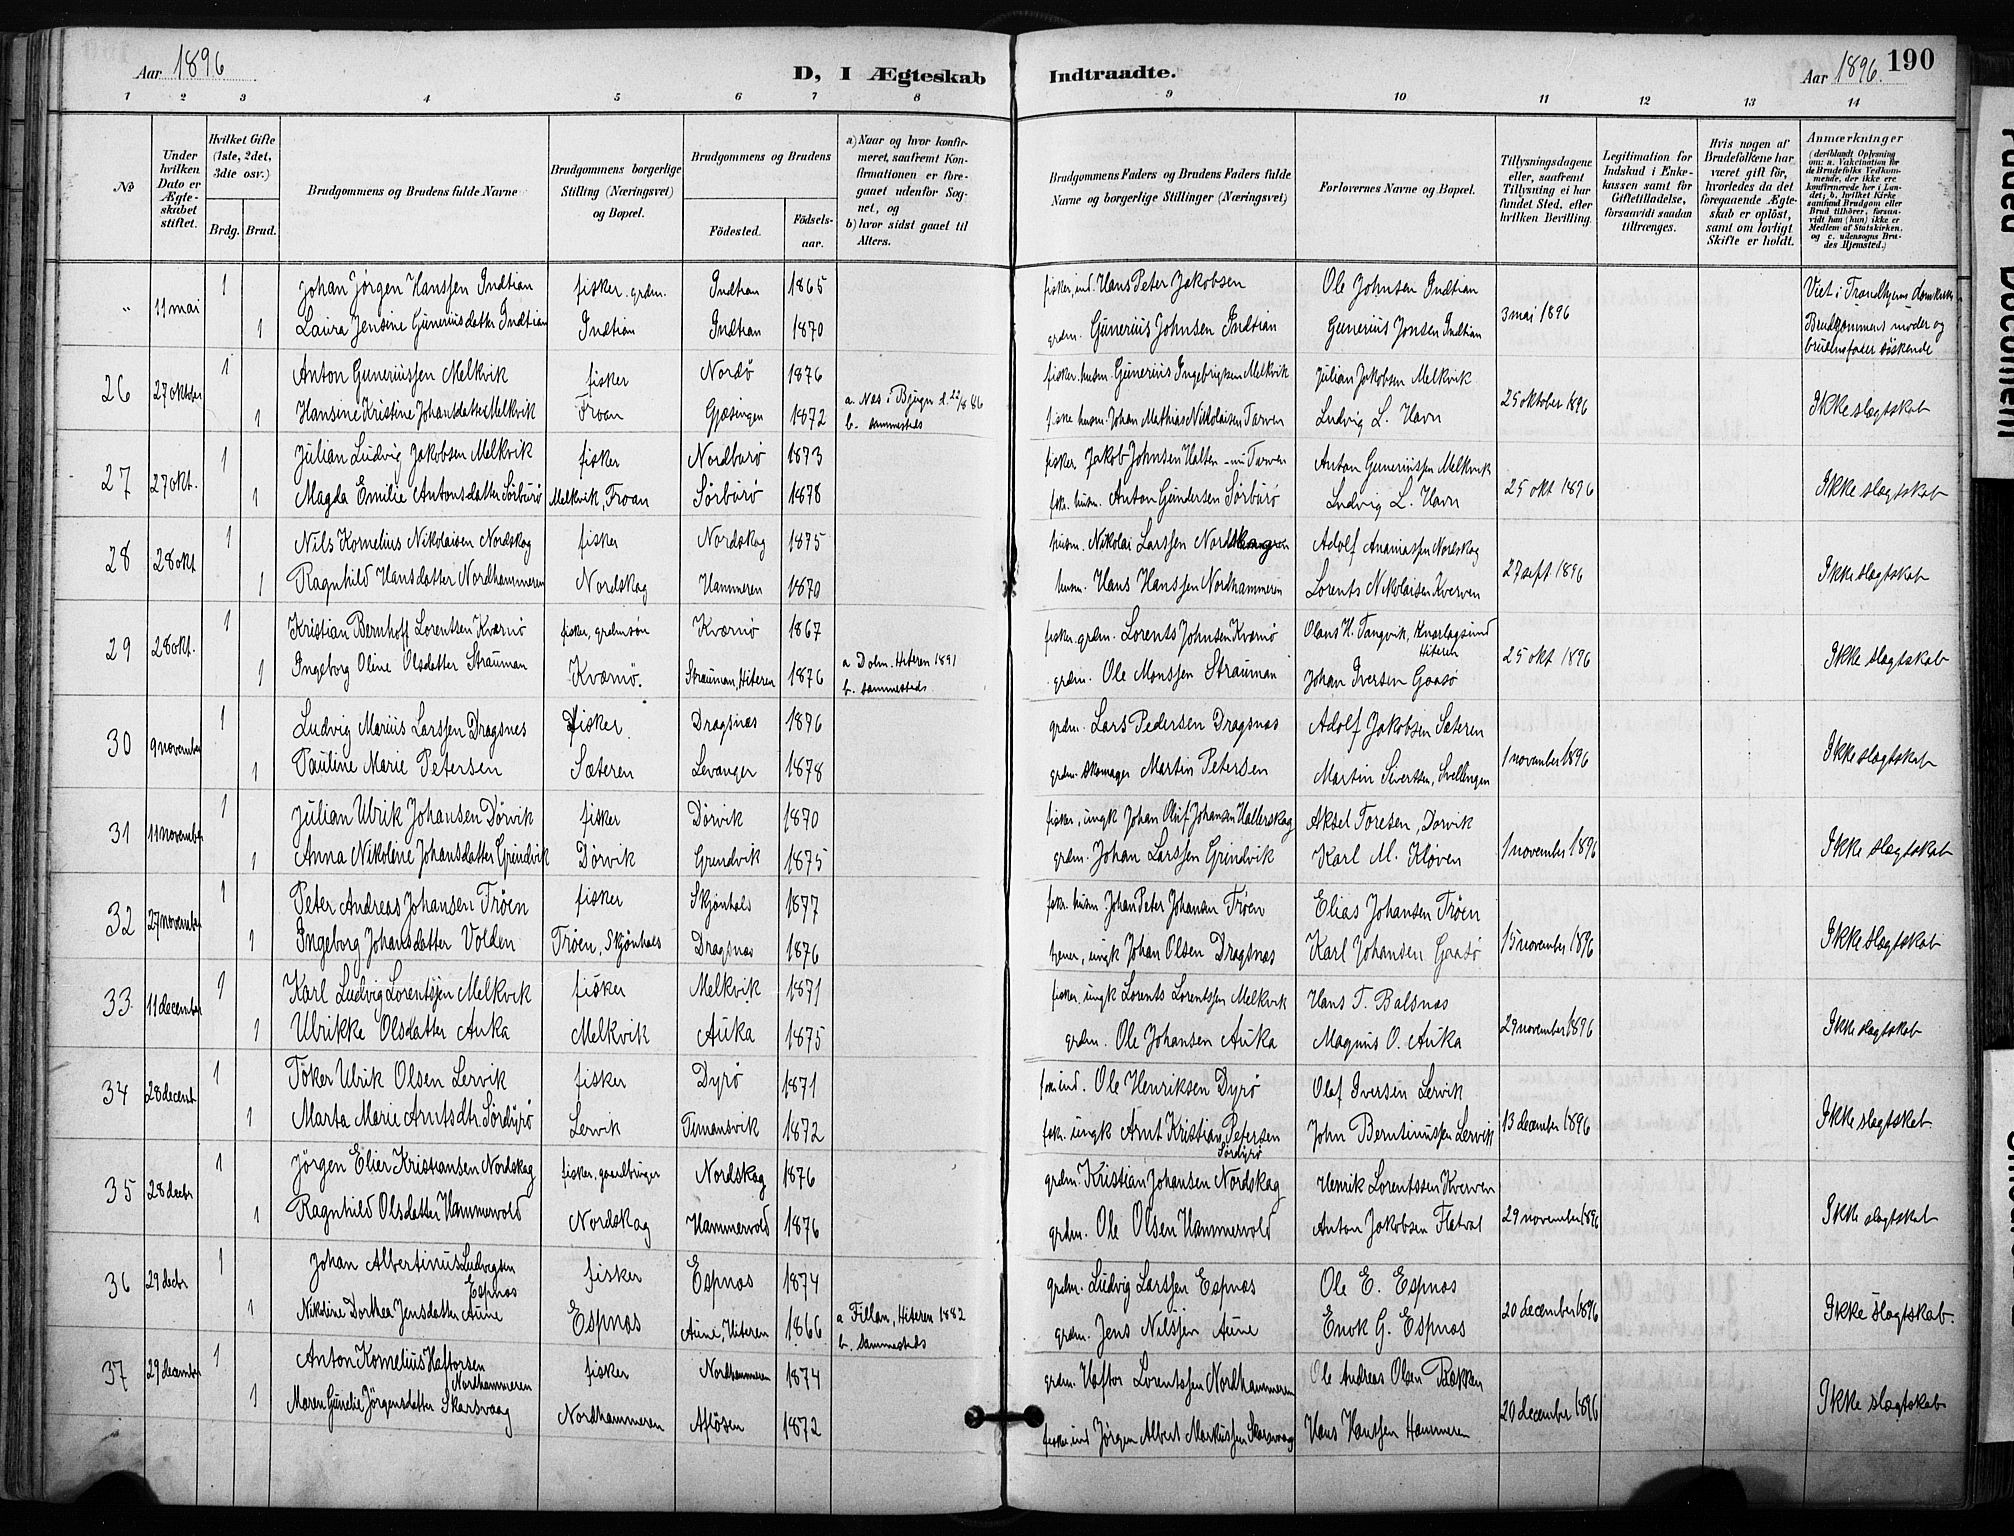 Aar 1896
D, I Ægteskab Indtraadte.
Aar 1896. 190
1 2 3 4 5 6 7 8 9 10 11 12 13 14
No
Under hvilken Dato er Ægteskabet stiftet.
Hvilket Gifte (1ste, 2det, 3die osv.)
Brdg. Brud.
Brudgommens og Brudens fulde Navne
Brudgommens borgerlige Stilling (Næringsvei) og Bopæl.
Brudgommens og Brudens
Fødested. Fødsels-aar.
a) Naar og hvor konfirmeret, saafremt Konfirmationen er foregaaet udenfor Sognet, og
b) hvor sidst gaaet til Alters.
Brudgommens Faders og Brudens Faders fulde Navne og borgerlige Stillinger (Næringsvei)
Forlovernes Navne og Bopæl.
Tillysningsdagene eller, saafremt Tillysning ei har fundet Sted, efter hvilken Bevilling.
Legitimation for Indskud i Enkekassen samt for Giftetilladelse, forsaavidt saadan tiltrænges.
Hvis nogen af Brudefolkene har været gift før, hvorledes da det foregaaende Ægteskab er opløst, samt om lovligt Skifte er holdt.
Anmærkninger
(deriblandt Oplysning om: a. Vakcination for de Brudefolks Vedkommende, der ikke ere konfirmerede her i Landet; b. hvilket Kirkesamfund Brudgom eller Brud tilhører, forsaavidt han (hun) ikke er Medlem af Statskirken, og c. udensogns Brudes Hjemsted.)
" 11 mai 1 Johan Jørgen Hanssen Indtian fisker. grdm. Indtian 1865 fisker, ind. Hans Peter Jakobsen Ole Johnsen Indtian 3 mai 1896 Viet i Trondhjems domkirke
1 Laura Jensine Guneriusdatter Indtian Indtian Indtian 1870 grdm. Gunerius Johnsen Indtian Gunerius Jonsen Indtian Brudgommens moder og brudens fader søskende
26 27 oktober 1 Anton Guneriussen Melkvik fisker Nordø 1876 fisker. husm. Gunerius Ingebrigtsen Melkvik Julian Jakobsen Melkvik 25 oktober 1896 Ikke slægtskab
1 Hansine Kristine Johansdatter Melkvik Froan Gjæsingen 1872 a. Nes i Bjugn d. 22/8 86 b. sammesteds fiske husm. Johan Mathias Nikolaisen Tarven Ludvig L. Havn
27 27 okt. 1 Julian Ludvig Jakobsen Melkvik fisker Nordburø 1873 fisker Jakob Johnsen Halten - nu Tarven Anton Guneriussen Melkvik 25 okt 1896 Ikke slægtskab
1 Magda Emilie Antonsdatter Sørburø Melkvik, Froan Sørburø 1878 fskr. husm. Anton Gundersen Sørburø Ludvig L. Havn
28 28 okt 1 Nils Kornelius Nikolaisen Nordskag fisker Nordskag 1875 husm. Nikolai Larssen Adolf Ananiassen Nordskag 27 sept 1896 Ikke slægtskab
1 Ragnhild Hansdatter Nordhammeren Nordskag Hammeren 1870 husm. Hans Hanssen Nordhammeren Lorents Nikolaisen Kverven
29 28 okt. 1 Kristian Bernhoff Lorentsen Kværnø fisker, grdmsøn Kværnø 1867 fisker. grdm. Lorents Johnsen Kværnø Olaus H. Tangvik, Knarlagsund Hiteren 25 okt 1896 Ikke slægtskab
1 Ingeborg Oline Olsdatter Strauman Kværnø. Strauman, Hiteren 1876 a Dolm. Hiteren 1891 b. sammesteds grdm. Ole Monssen Strauman Johan Iversen Gaasø
30 9 november 1 Ludvig Marius Larssen Dragsnes fisker. Dragsnæs 1876 grdm. Lars Pedersen Dragsnæs Adolf Jakobsen Sæteren 1 november 1896 Ikke slægtskab
1 Pauline Marie Petersen Sæteren Levanger 1878 grdm. skomager Martin Petersen Martin Sivertsen, Svellingen
31 11 november 1 Julian Ulrik Johansen Dørvik fisker Dørvik 1870 fisker, ungk Johan Oluf Johansen Hallerskag Aksel Foresen, Dørvik 1 november 1896 Ikke slægtskab
1 Anna Nikoline Johansdatter Grindvik Dørvik Grindvik 1875 grdm. Johan Larssen Grindvik Karl M. Kløven
32 27 november 1 Peter Andreas Johansen Trøen fisker Skjønhals 1877 fskr. husm Johan Peter Johansen Trøen Elias Johansen Trøen 15 november 1896 Ikke slægtskab
1 Ingeborg Johansdatter Volden Trøen, Skjønhals Dragsnæs 1876 tjener, ungk Johan Olsen Dragsnæs Karl Johansen Gaasø
33 11 december 1 Karl Ludvig Lorentssen Melkvik fisker Melkvik 1871 fisker. ungk Lorents Lorentssen Melkvik Hans T. Balsnæs 29 november 1896 Ikke slægtskab
1 Ulrikke Olsdatter Auka Melkvik Auka 1875 grdm. Ole Johansen Auka Magnus O. Auka
34 28 decemb. 1 Toker Ulrik Olsen Lervik fisker Dyrø 1871 ind. Ole Henriksen Dyrø Olaf Iversen Lervik 13 december 1896 Ikke slægtskab.
1 Marta Marie Arntsdtr. Sørdyrø Lervik Temansvik 1872 fskr. ungk Arnt Kristian Petersen Sørdyrø John Berntinussen Lervik
35 28 decbr 1 Jørgen Elier Kristiansen Nordskag fisker, gaardbruger Nordskag 1876 grdm. Kristian Johansen Nordskag Henrik Lorentssen Kverven 29 november 1896 Ikke slægtskab
1 Ragnhild Olsdatter Hammervold Nordskag Hammervold 1876 grdm. Ole Olsen Hammervold Anton Jakobsen Flatval
36 29 decbr 1 Johan Albertinus Ludvigsen Espnæs fisker Espnæs 1874 grdm. Ludvig Larssen Espnæs Ole E. Espnæs 20 december 1896 Ikke slægtskab.
1 Nikoline Dorthea Jensdatter Aune Espnæs Aune, Hiteren 1866 a Fillan, Hiteren 1882 b. sammesteds grdm. Jens Nilssen Aune Enok G. Espnæs
37 29 december 1 Anton Kornelius Haftorsen Nordhammeren fisker Nordhammeren 1874 grdm. Haftor Lorentssen Nordhammeren Ole Andreas Olsen Bakken 20 december 1896 Ikke slægtskab
1 Maren Gunelie Jørgensdatter Skarsvaag Nordhammeren Afløsen 1872 fisker ind Jørgen Albert Markussen Skarsvaag Hans Hanssen Hammeren